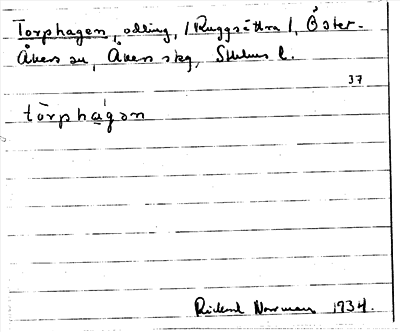 Torphagen, odling, /Ruggsättra/, Öster-
Åkers sn, Åkers skg, Sthlms l.
37
tòrphą́gən
Rickard Norman 1934.